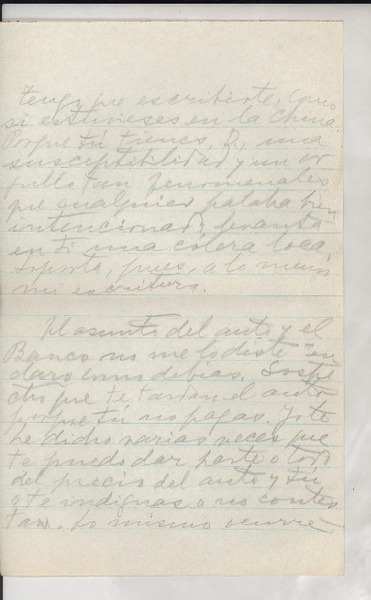 tengo que escribirte, como
si estuvieses en la China.
Porque tú tienes, D., una
susceptibilidad y un or
gullo tan fenomenales
que cualquier palabra bien
intencionada levanta
en ti una cólera loca.
Soporta, pues, a lo menos
mi escritura.
El asunto del auto y el
Banco no me lo diste en
claro como debías. Sospe
cho que te tardan el auto
porque tú no pagas. Yo te
he dicho varias veces que
te puedo dar parte o todo
del precio del auto y tú
o te indignas o no contes
tas. Lo mismo ocurre